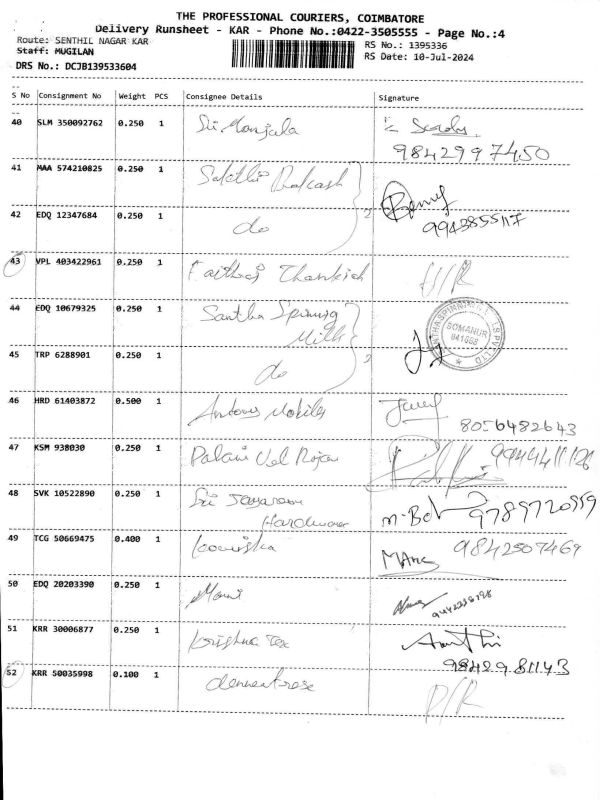 THE PROFESSIONAL COURIERS, COIMBATORE
Delivery Runsheet - KAR - Phone No.:0422-3505555 - Page No.:4
Route: SENTHIL NAGAR KAR
RS No.: 1395336
Staff: MUGILAN
RS Date: 10-Jul-2024
DRS No.: DCJB139533604
S No Consignment No Weight PCS Consignee Details Signature
40 SLM 350092762 0.250 1 Sri Manjula
9842997450
41 MAA 574210825 0.250 1 Sakthi Prakash
42 EDQ 12347684 0.250 1 do 2
9943855117
43 VPL 403422961 0.250 1
44 EDQ 10679325 0.250 1 Santha Spinning
Mills
SOMANUR
641668
45 TRP 6288901 0.250 1 do 2
46 HRD 61403872 0.500 1 Antony Mobiles
8056482643
47 KSM 938030 0.250 1 Palani Vel Rajan
48 SVK 10522890 0.250 1 Sri Jayaram
Hardware
9789720959
49 TCG 50669475 0.400 1
9842507469
50 EDQ 20203390 0.250 1 Mani
51 KRR 30006877 0.250 1 Krishna Tex
9842981143
52 KRR 50035998 0.100 1
D/R